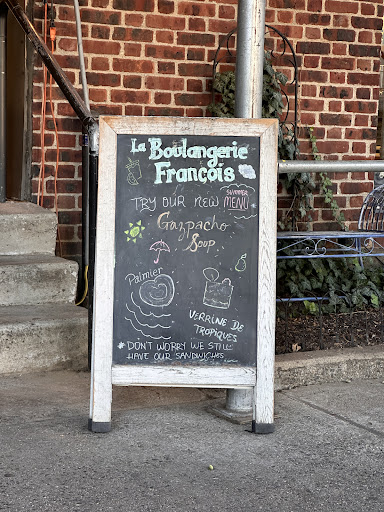 La Boulangerie
François
TRY OUR NEW SUMMER MENU
Gazpacho
Soup
Palmier
VERRINE DE
TROPIQUES
*DON'T WORRY WE STILL
HAVE OUR SANDWICHES